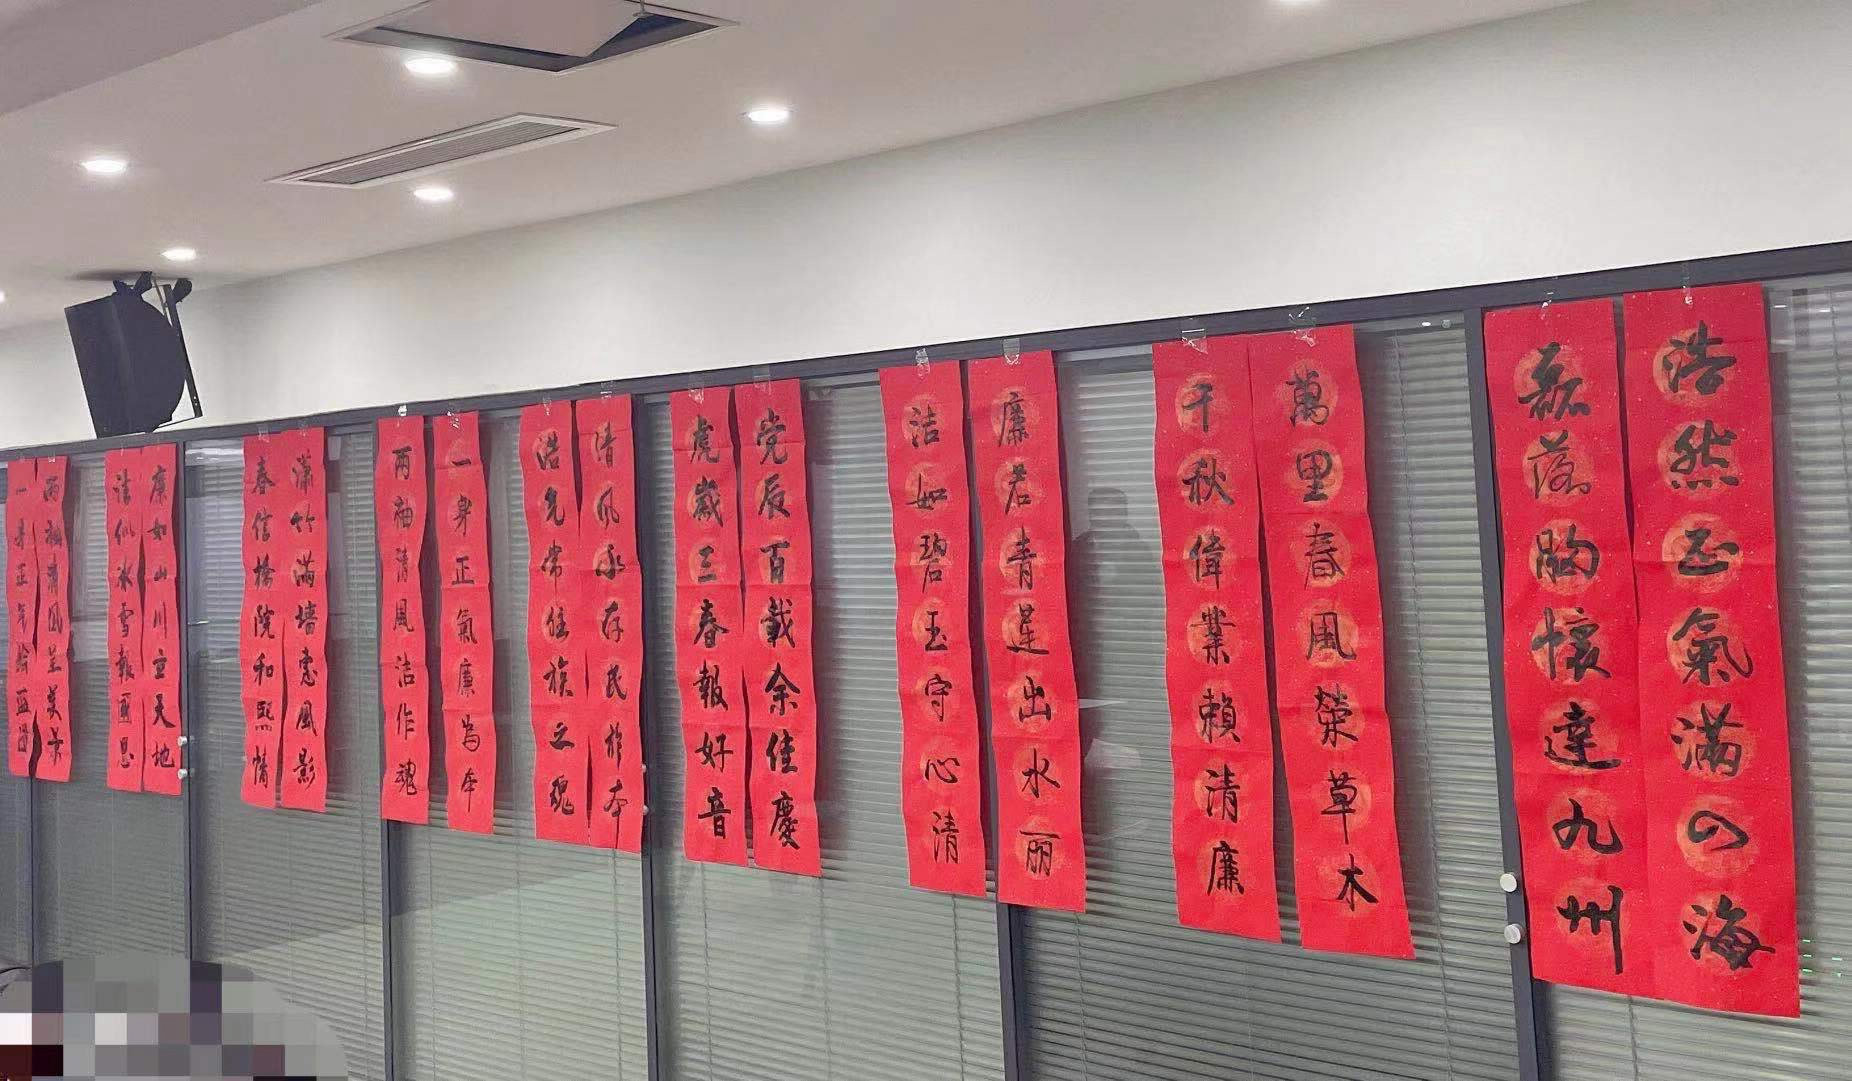 浩然正氣滿四海
磊落胸懷達九州
萬里春風榮草木
千秋偉業賴清廉
廉若青莲出水丽
洁如碧玉守心清
党辰百載余佳慶
虎歲三春報好音
清风永存民族本
浩光常住族之魂
一身正氣廉為本
两袖清風洁作魂
潇竹满墙惠風影
春信撩院和熙情
廉如山川立天地
洁似冰雪報國恩
两袖清风呈美景
一身正气绘蓝图